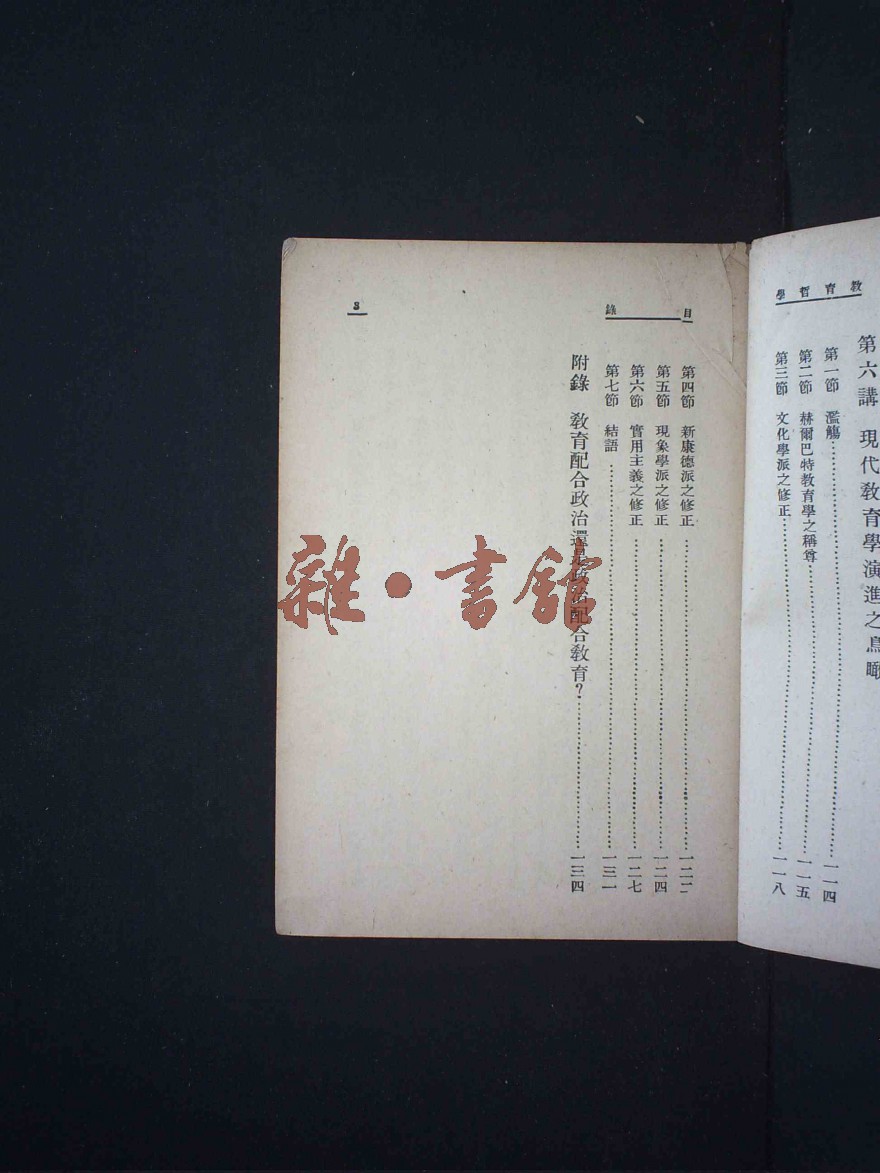 教育哲學
第六講 現代教育學演進之鳥瞰
第一節 濫觴……一一四
第二節 赫爾巴特教育學之稱尊……一一五
第三節 文化學派之修正……一一八
目錄
第四節 新康德派之修正……一二二
第五節 現象學派之修正……一二四
第六節 實用主義之修正……一二七
第七節 結語……一三一
附錄 教育配合政治還是政治配合教育？……一三四
3
雜·書館